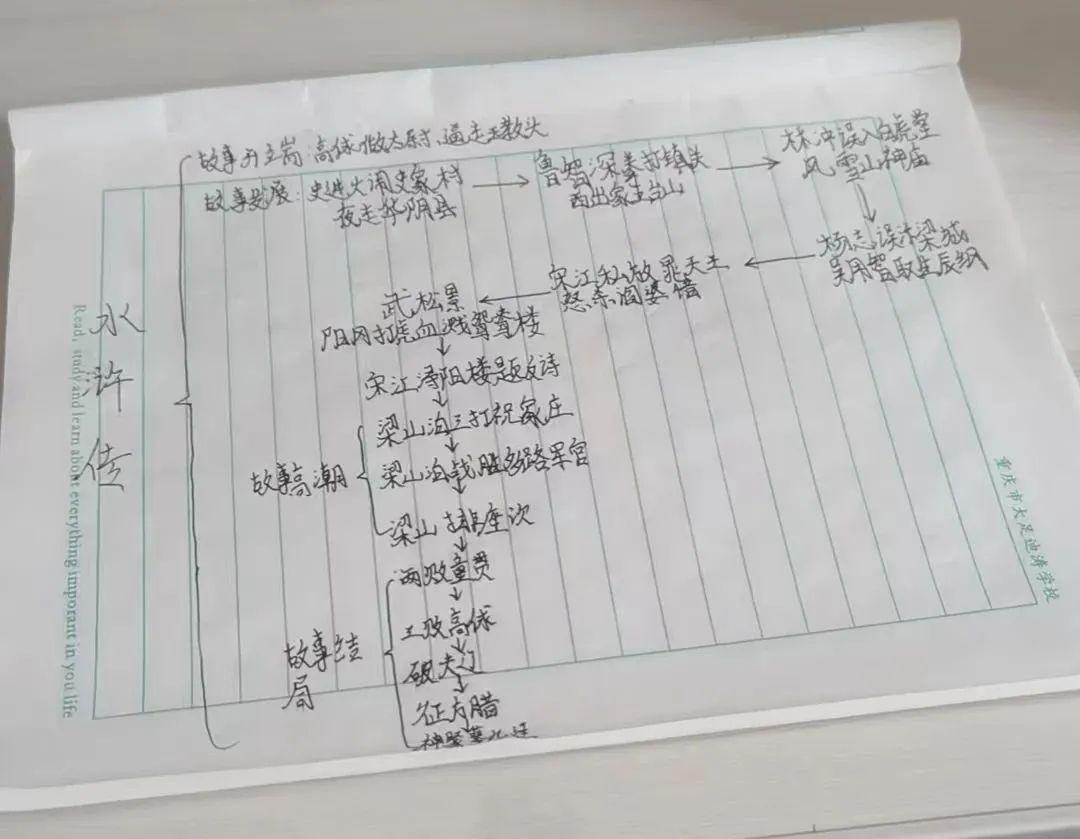 水浒传
故事开端:高俅做太尉,逼走王教头
故事发展:史进大闹史家村
夜走华阴县
鲁智深拳打镇关
西出家五台山
林冲误入白虎堂
风雪山神庙
杨志误汴梁城
吴用智取生辰纲
宋江私放晁天王
怒杀阎婆惜
武松景
阳冈打虎血溅鸳鸯楼
宋江浔阳楼题反诗
故事高潮
梁山泊三打祝家庄
梁山泊战胜多路军官
梁山排座次
故事结
局
两败童贯
三败高俅
破大辽
征方腊
神聚蓼儿洼
Read, study and learn about everything imporant in you life
重庆市大足迪涛学校